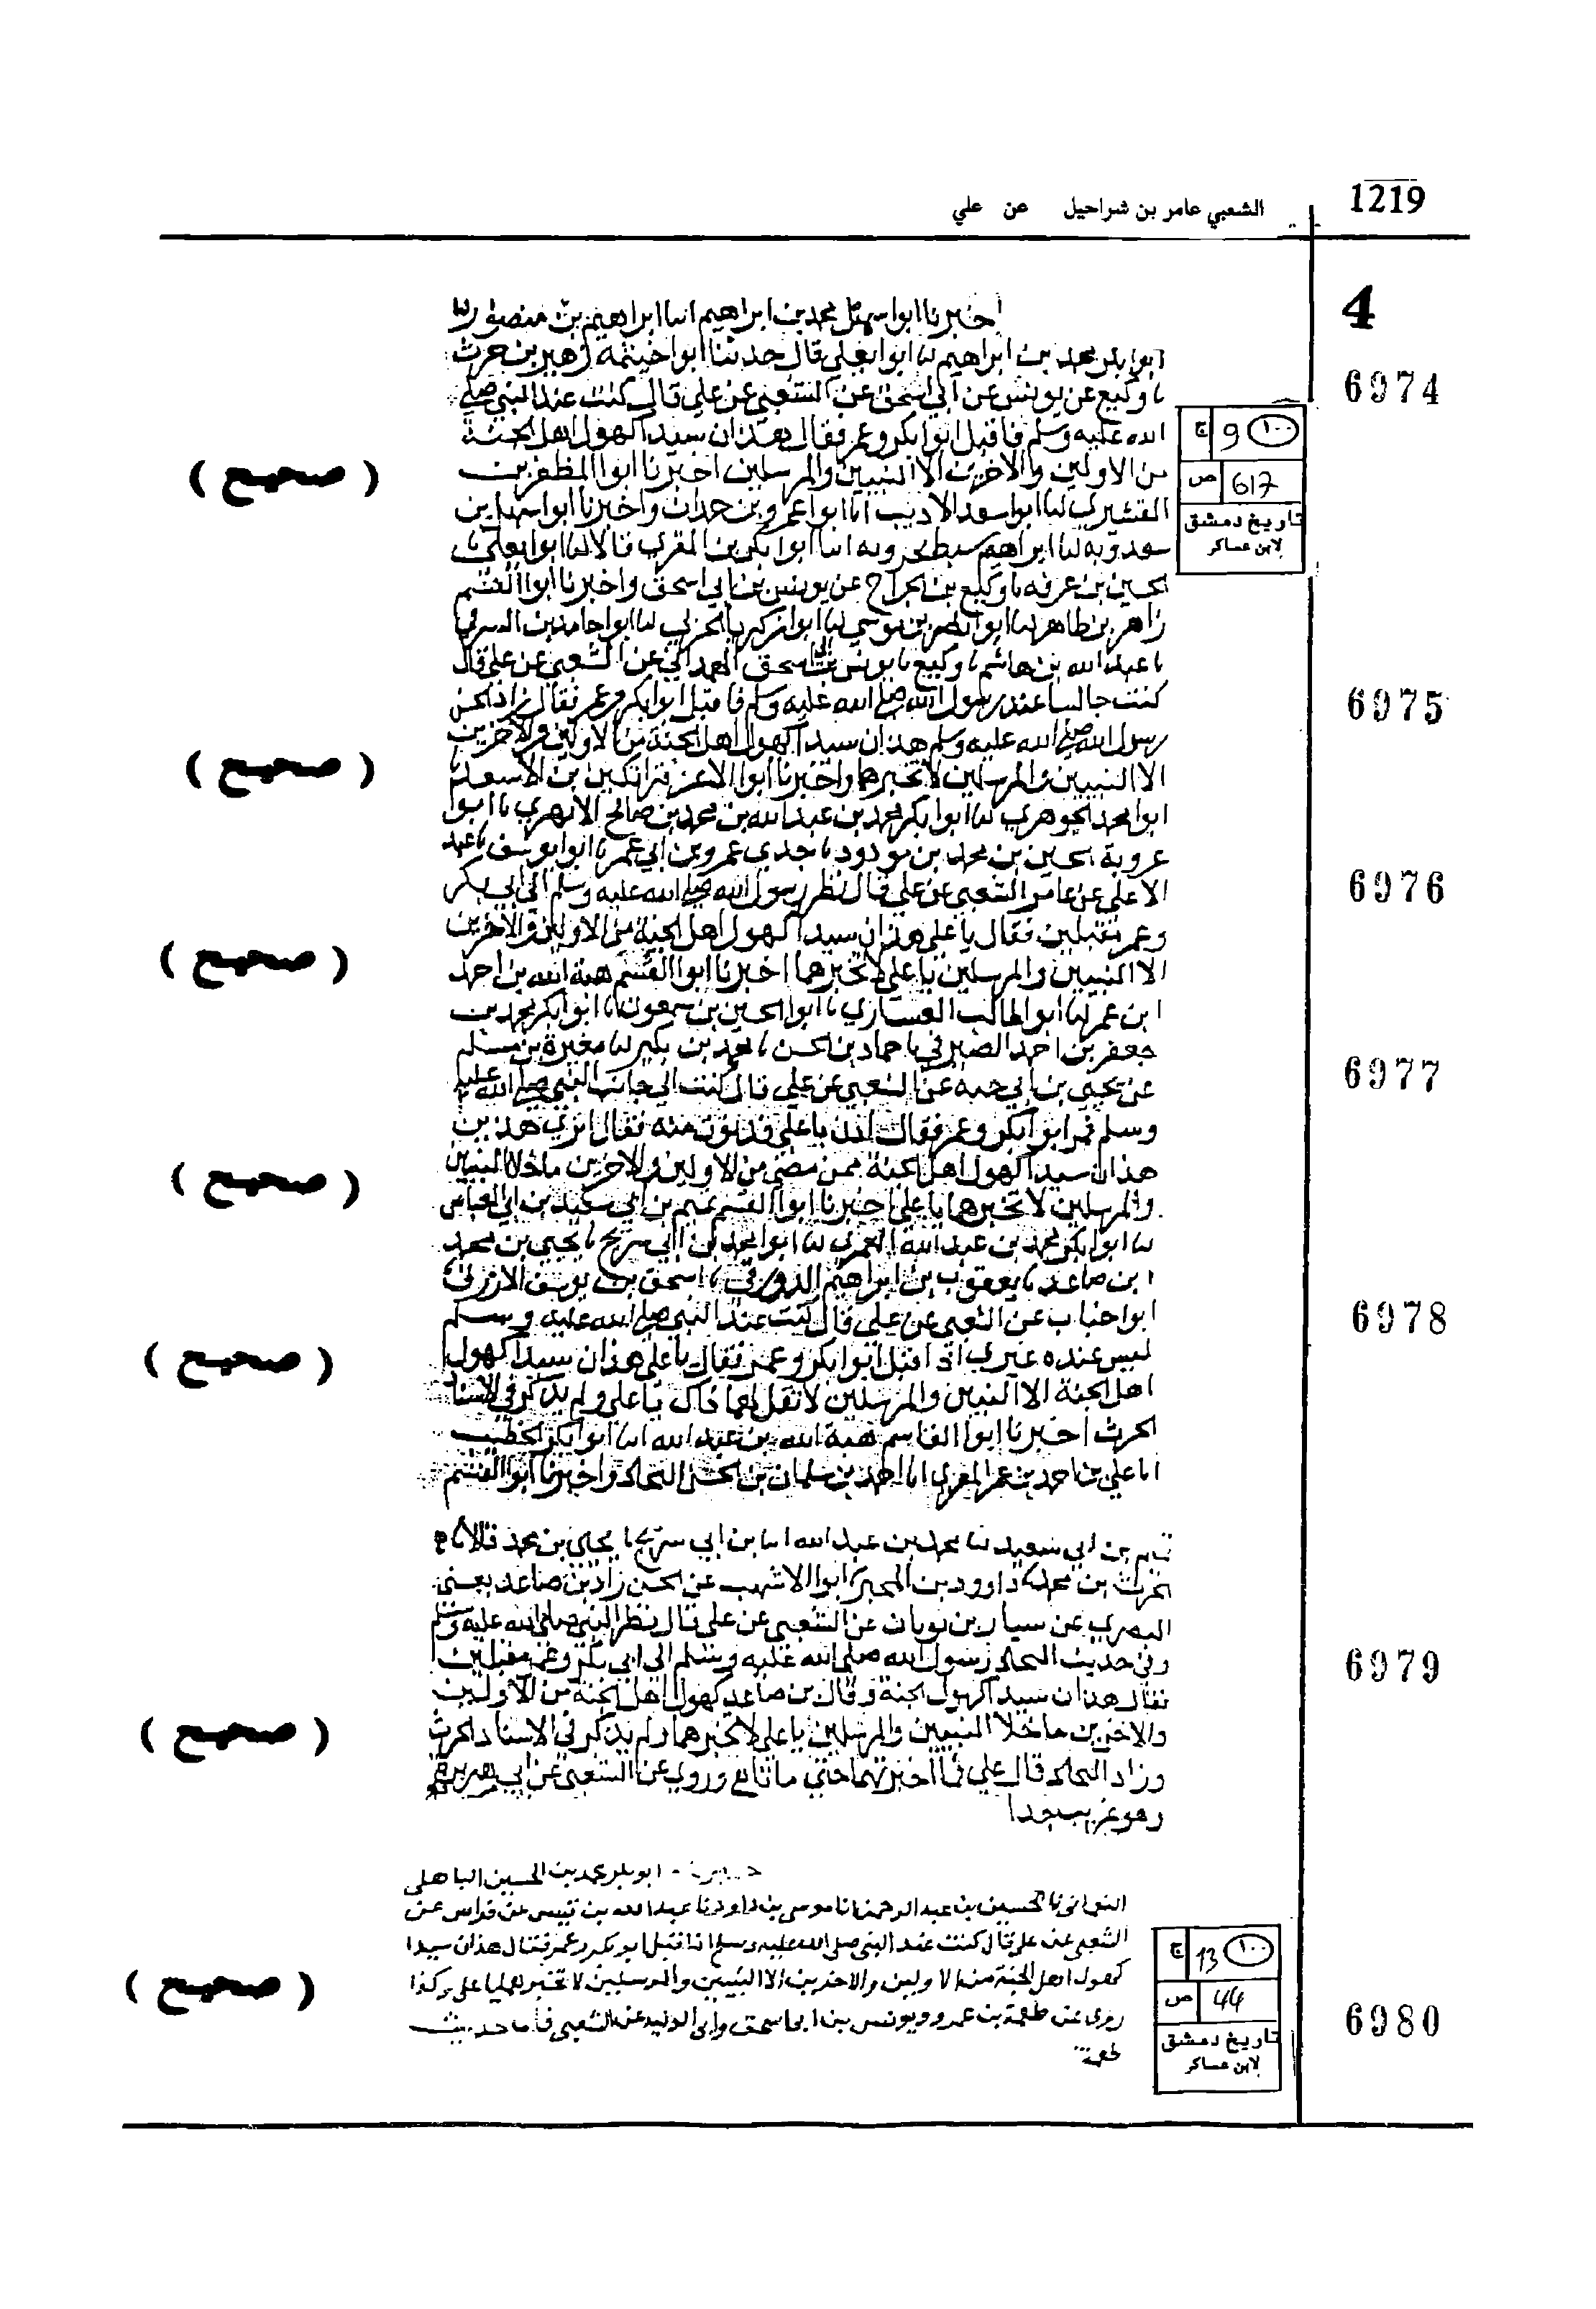 1219
الشعبي عامر بن شراحيل عن علي
4
اخبرنا ابوا سهل محمد بن ابراهيم انبا ابراهيم بن منصور انبا
ابوا بكر محمد بن ابراهيم انا ابوا يعلي قال حدثنا ابوا خيثمه زهير بن حرث
6974
نا وكيع عن يونس عن ابي اسحق عن الشعبي عن علي قال كنت عند النبي صلي
الله عليه وسلم فاقبل ابوا بكر وعمر فقال هذان سيدا كهول اهل الجنة
ج 9 ١٠٠
ص 617
تاريخ دمشق
لابن عساكر
من الاولين والاخرين الا النبيين والمرسلين اخبرنا ابوا المظفر بن
( صحيح )
القشيري انا ابوا سعد الاديب انا ابوا عمرو بن حمدان واخبرنا ابوا سهل بن
سعدويه انا ابراهيم سبط بحرويه انا ابوا بكر بن المقري قالا انا ابوا يعلي نا
الحسين بن عرفه نا وكيع بن الجراح عن يونس بن ابي اسحق واخبرنا ابوا القسم
زاهر بن طاهر انا ابوا نصر بن موسي انا ابوا زكريا الحربي انا ابوا حامد بن الشرقي
نا عبد الله بن هاشم نا وكيع نا يونس بن ابي اسحق الهمداني عن الشعبي عن علي قال
6975
كنت جالسا عند رسول الله صلي الله عليه وسلم فاقبل ابوا بكر وعمر فقال
رسول الله صلي الله عليه وسلم هذان سيدا كهول اهل الجنة من الاولين والاخرين
( صحيح )
الا النبيين والمرسلين لا تخبرهما واخبرنا ابوا الاعز قراتكين بن الاسعد نا
ابوا محمد الجوهري انا ابوا بكر محمد بن عبد الله بن محمد بن صالح الابهري نا ابوا
عروبة الحسين بن محمد بن مودود نا جدي عمرو بن ابي عمر نا ابوا يوسف نا عبد
6976
الاعلي عن عامر الشعبي عن علي قال نظر رسول الله صلي الله عليه وسلم الي ابي بكر
وعمر مقبلين فقال يا علي هذان سيدا كهول اهل الجنة من الاولين والاخرين
( صحيح )
الا النبيين والمرسلين يا علي لا تخبرهما اخبرنا ابوا القسم هبة الله بن احمد
ابن عمر انا ابوا طالب العشاري نا ابوا الحسين بن سمعون نا ابوا بكر محمد بن
جعفر بن احمد الصيرفي نا حماد بن الحسن نا بن بكير انا مغيرة بن مسلم
6977
عن يحيي بن ابي حيه عن الشعبي عن علي قال كنت الي جانب النبي صلي الله عليه
وسلم فمر ابوا بكر وعمر فقال ادن يا علي فدنوت منه فقال اتري هذين
هذان سيدا كهول اهل الجنة ممن مضي من الاولين والاخرين ما خلا النبيين
( صحيح )
والمرسلين لا تخبرهما يا علي اخبرنا ابوا القسم تميم بن ابي سعيد بن ابي العباس
انا ابوا بكر محمد بن عبد الله العمري انا ابوا محمد بن ابي سريح نا يحيي بن محمد
ابن صاعد نا يعقوب بن ابراهيم الدورقي نا اسحق بن يوسف الازرق نا
6978
ابوا جناب عن الشعبي عن علي قال كنت عند النبي صلي الله عليه وسلم
ليس عنده غيري اذ اقبل ابوا بكر وعمر فقال يا علي هذان سيدا كهول
( صحيح )
اهل الجنة الا النبيين والمرسلين لا تقل لهما ذاك يا علي ولم يذكر في الاسناد
الحرث اخبرنا ابوا القاسم هبة الله بن عبد الله انا ابوا بكر الخطيب
انا علي بن احمد بن عمر المقري انا احمد بن سلمان بن الحسن النجاد واخبرنا ابوا القسم
تميم بن ابي سعيد انا محمد بن عبد الله انا بن ابي سريح نا يحيي بن محمد قالا نا
الحرث بن محمد نا داوود بن المحبر نا ابوا الاشهب عن الحسن زاد بن صاعد يعني
البصري عن سيار بن عن الشعبي عن علي قال نظر النبي صلي الله عليه وسلم
6979
وفي حديث النجاد رسول الله صلي الله عليه وسلم الي ابي بكر وعمر مقبلين
فقال هذان سيدا كهول الجنة وقال بن صاعد كهول اهل الجنة من الاولين
( صحيح )
والاخرين ما خلا النبيين والمرسلين يا علي لا تخبرهما ولم يذكر في الاسناد الحرث
وزاد النجاد قال علي فما اخبرتهما حتي ماتا وروي عن الشعبي عن ابي هريرة
وهو غريب جدا
ابو بكر محمد بن الحسين الباهلي
نا الحسين بن عبد الرحمن نا موسى بن داود نا عبد الله بن عن فراس عن
الشعبي عن علي قال كنت عند النبي صلى الله عليه وسلم اذ اقبل ابو بكر وعمر فقال هذان سيدا
ج 13 ١٠٠
ص 44
تاريخ دمشق
لابن عساكر
كهول اهل الجنة من الاولين والاخرين الا النبيين والمرسلين لا تخبرهما يا علي وكذا
( صحيح )
6980
روى عن طعمة بن عمرو ويونس بن ابي اسحق وابي الوليد عن الشعبي فاما حديث
طعمة